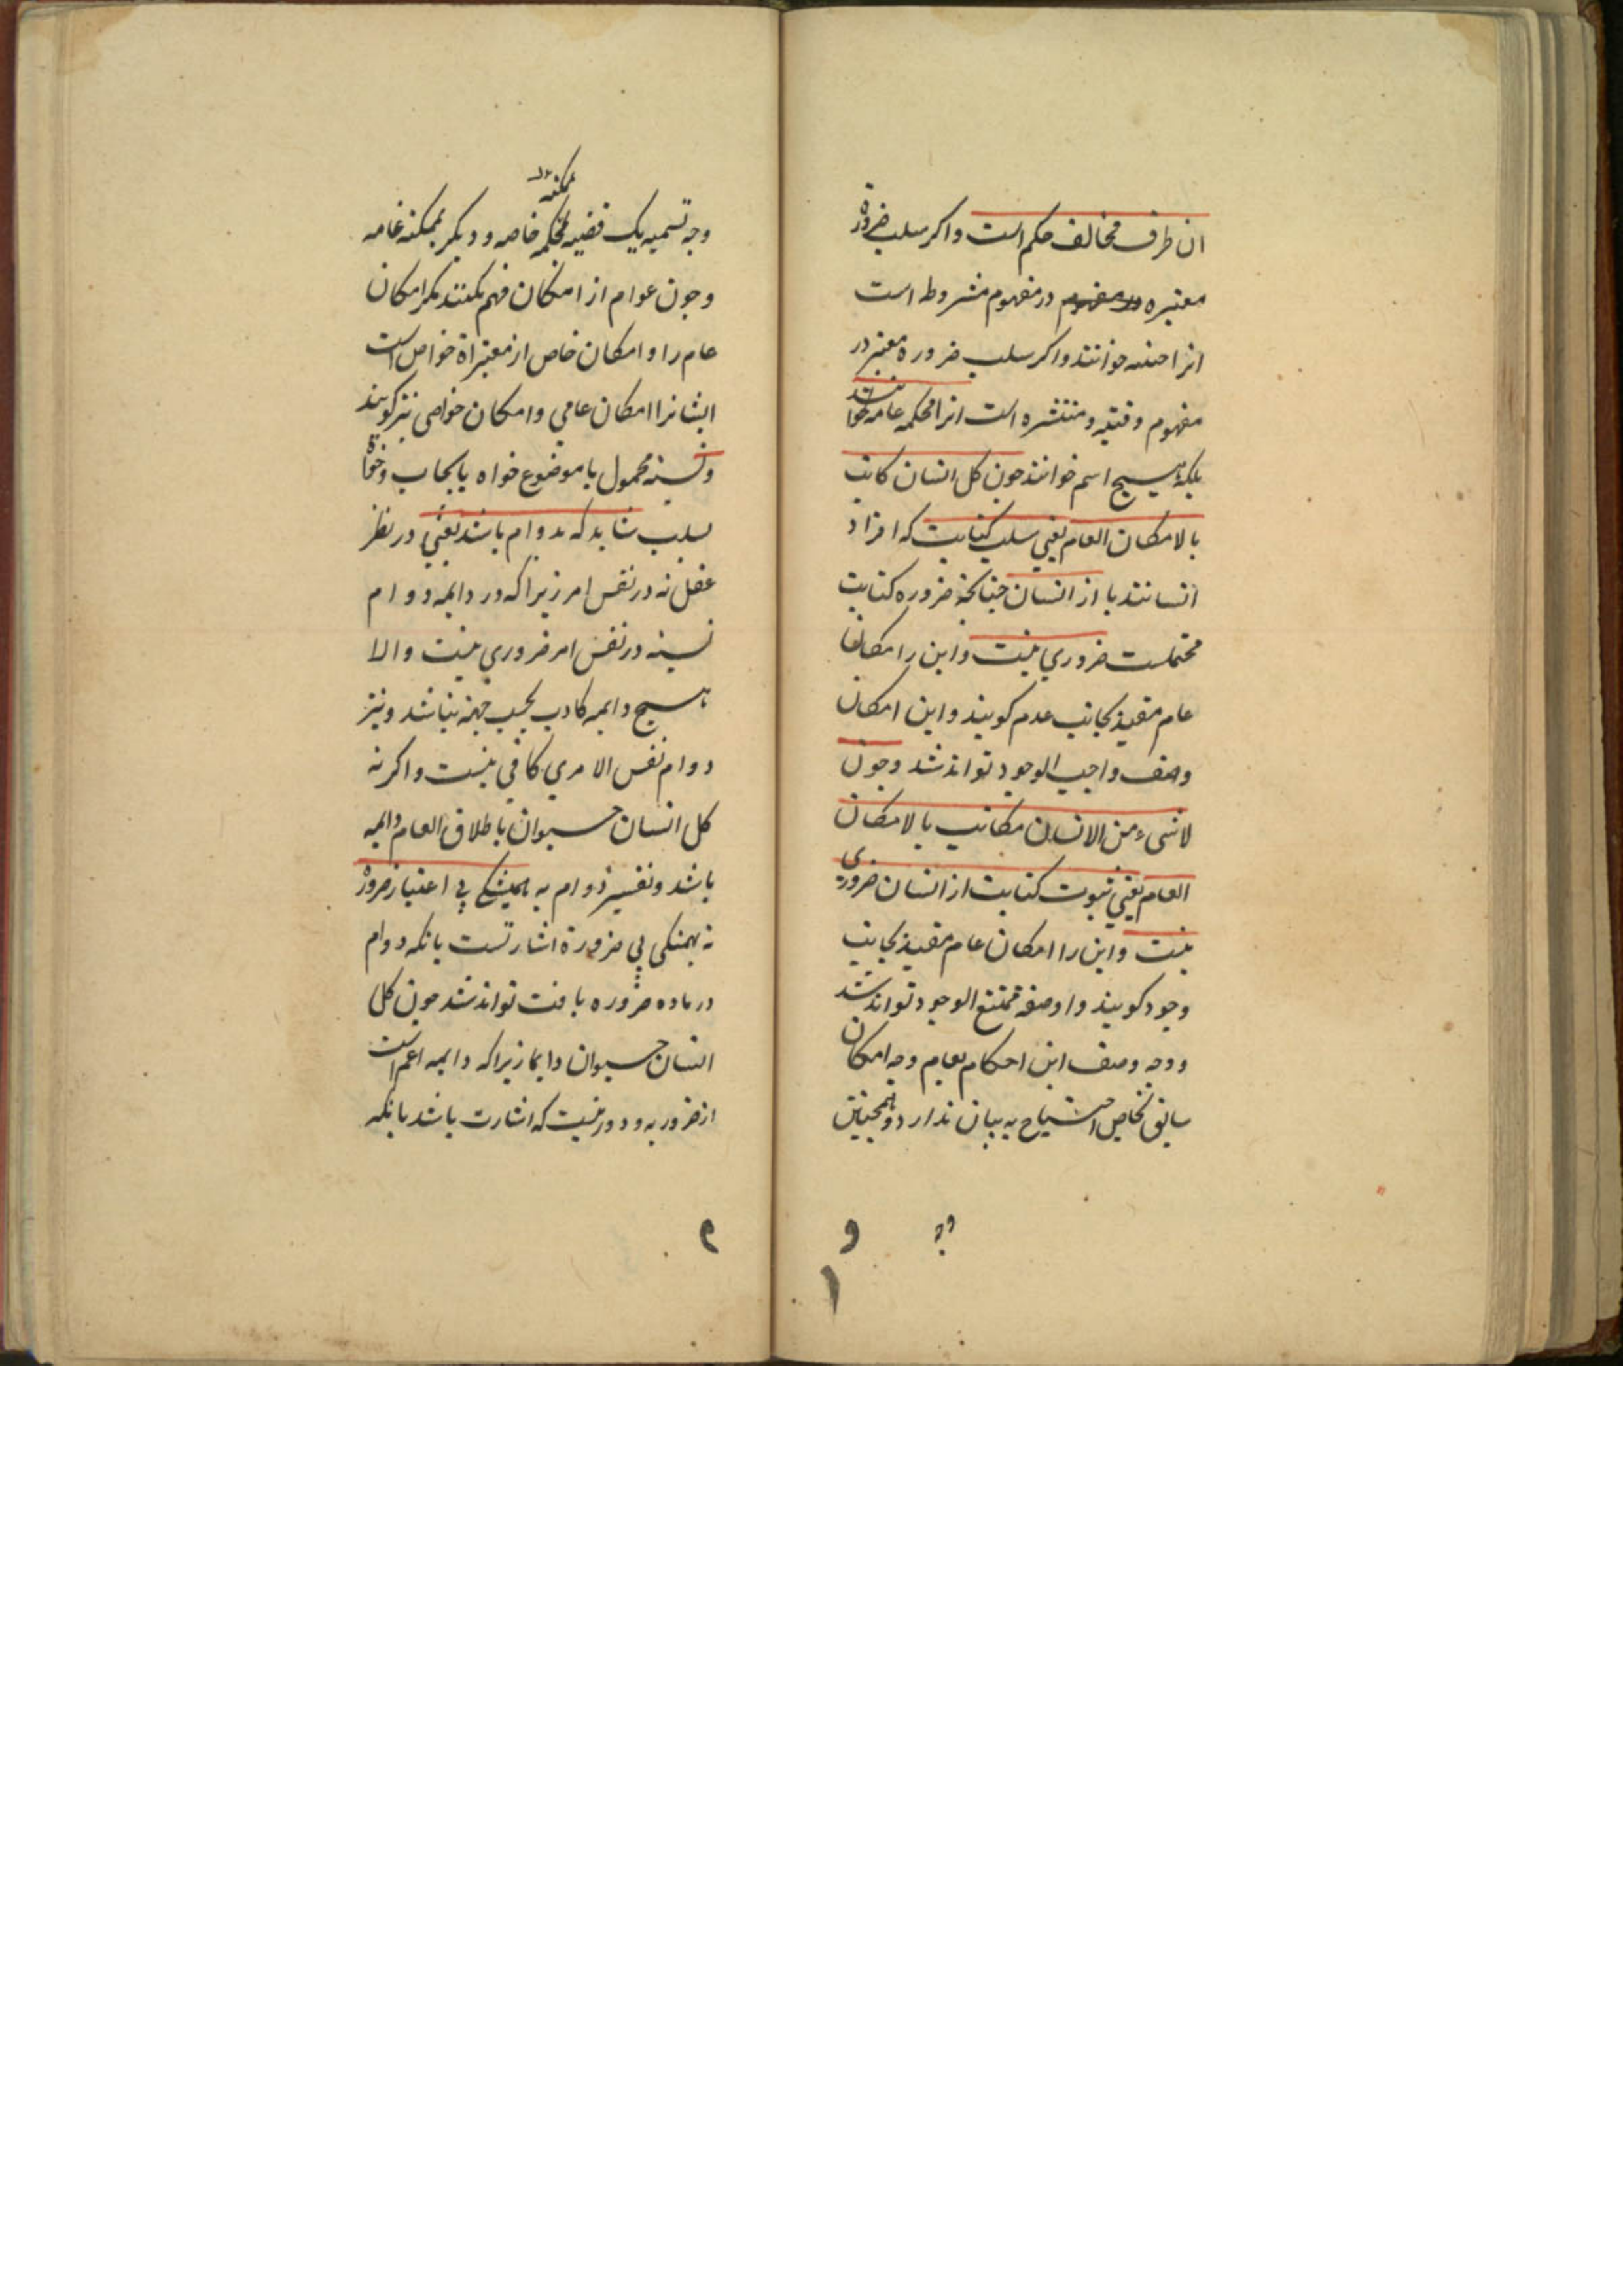 ان طرف مخالف حکم است واکر سلب ضرورة
معتبره در مفهوم در مفهوم مشروطه است
انرا حینیه خوانند واکر سلب ضروره معتبر در
مفهوم وقتیه و منتشره است انرا محکمه عامه
بلکه هیچ اسم خوانند جون کل انسان کاتب
بالامکان العام یعنی سلب کتابت که افراد
انسانند یا از انسان جنانکه ضروره کتابت
ضروری نیست واین را امکان
عام مقید بجانب عدم کویند واین امکان
وصف واجب الوجود تواند شد وجون
لا شیء من الانسان مکاتب بالامکان
العام یعنی ثبوت کتابت از انسان ضروری
نیست واین را امکان عام مقید بجانب
وجود کویند واو صفة ممتنع الوجود تواند شد
ووجه وصف این احکام بعام وجه امکان
سابق بخاص احتیاج به بیان ندارد وهمجنین
وجه
و
وجه تسمیه یک قضیه بمحکمه خاصه و دیکر بممکنه عامه
ممکنه
وجون عوام از امکان فهم نکنند مکر امکان
عام را و امکان خاص از معتبراة خواص است
ایشانرا امکان عامی وامکان خواصی نیز کویند
ونسبة محمول با موضوع خواه بایجاب وخواه
بسلب شاید که بدوام باشد یعنی در نظر
عقل نه در نفس امر زیرا که در دایمه دوام
نسبة در نفس امر ضروری نیست والا
هیج دایمه کادب بحسب جهة نباشد ونیز
دوام نفس الامری کافی نیست واکر نه
کل انسان حیوان باطلاق العام دایمه
باشد وتفسیر دوام به همیشکی بی اعتبار ضرورة
نه بهمشکی بی ضرورة اشارتست بانکه دوام
در ماده ضروره یافت تواند شد جون کل
انسان حیوان دایما زیرا که دایمه اعم است
از ضروریه و دور نیست که اشارت باشد بانکه
م